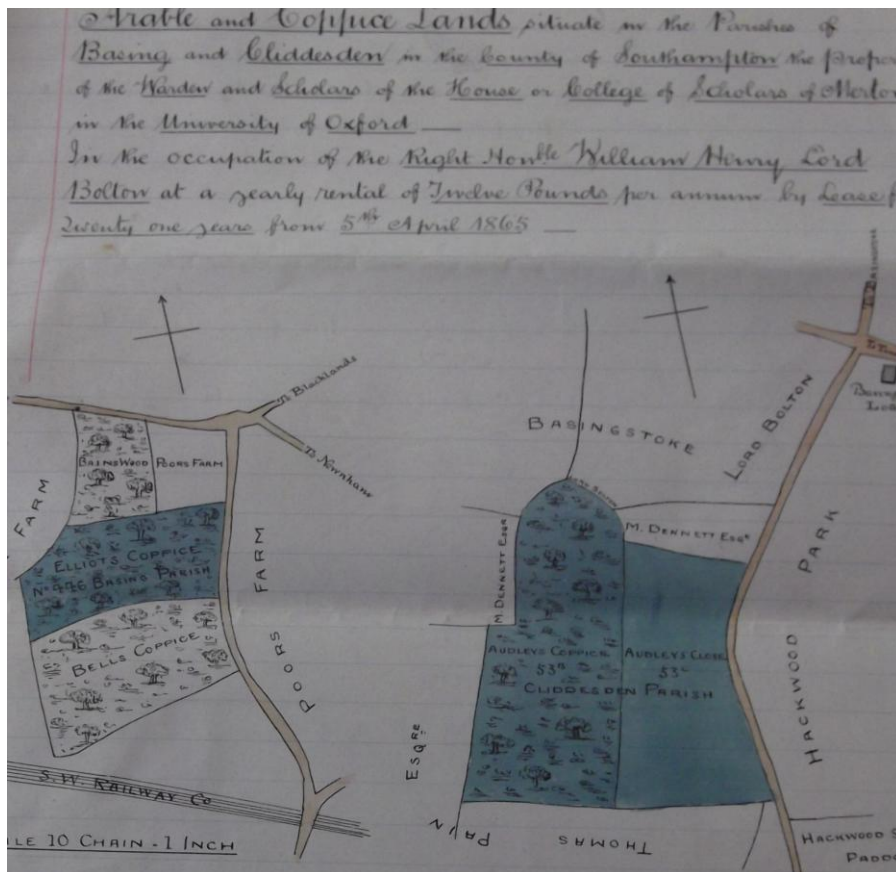 Arable and Coppice Lands situate in the Parishes of
Basing and Cliddesden in the County of Southampton the
of the Warden and Scholars of the House or College of Scholars of Merton
in the University of Oxford
In the occupation of the Right Honble William Henry Lord
Bolton at a yearly rental of Twelve Pounds per annum by Lease
Twenty one years from 5th April 1865
To Blacklands
To Newnham
BASINGSTOKE
LORD BOLTON
BASINGSTOKE
BAINSWOOD
POORS FARM
FARM
ELLIOTS COPPICE
No 446 BASING PARISH
BELLS COPPICE
POORS FARM
S. W. RAILWAY Co
10 CHAIN - 1 INCH
M. DENNETT ESQR
M. DENNETT ESQR
AUDLEYS COPPICE
AUDLEYS CLOSE
CLIDDESDEN PARISH
HACKWOOD PARK
ESQRE
PAIN
THOMAS
HACKWOOD